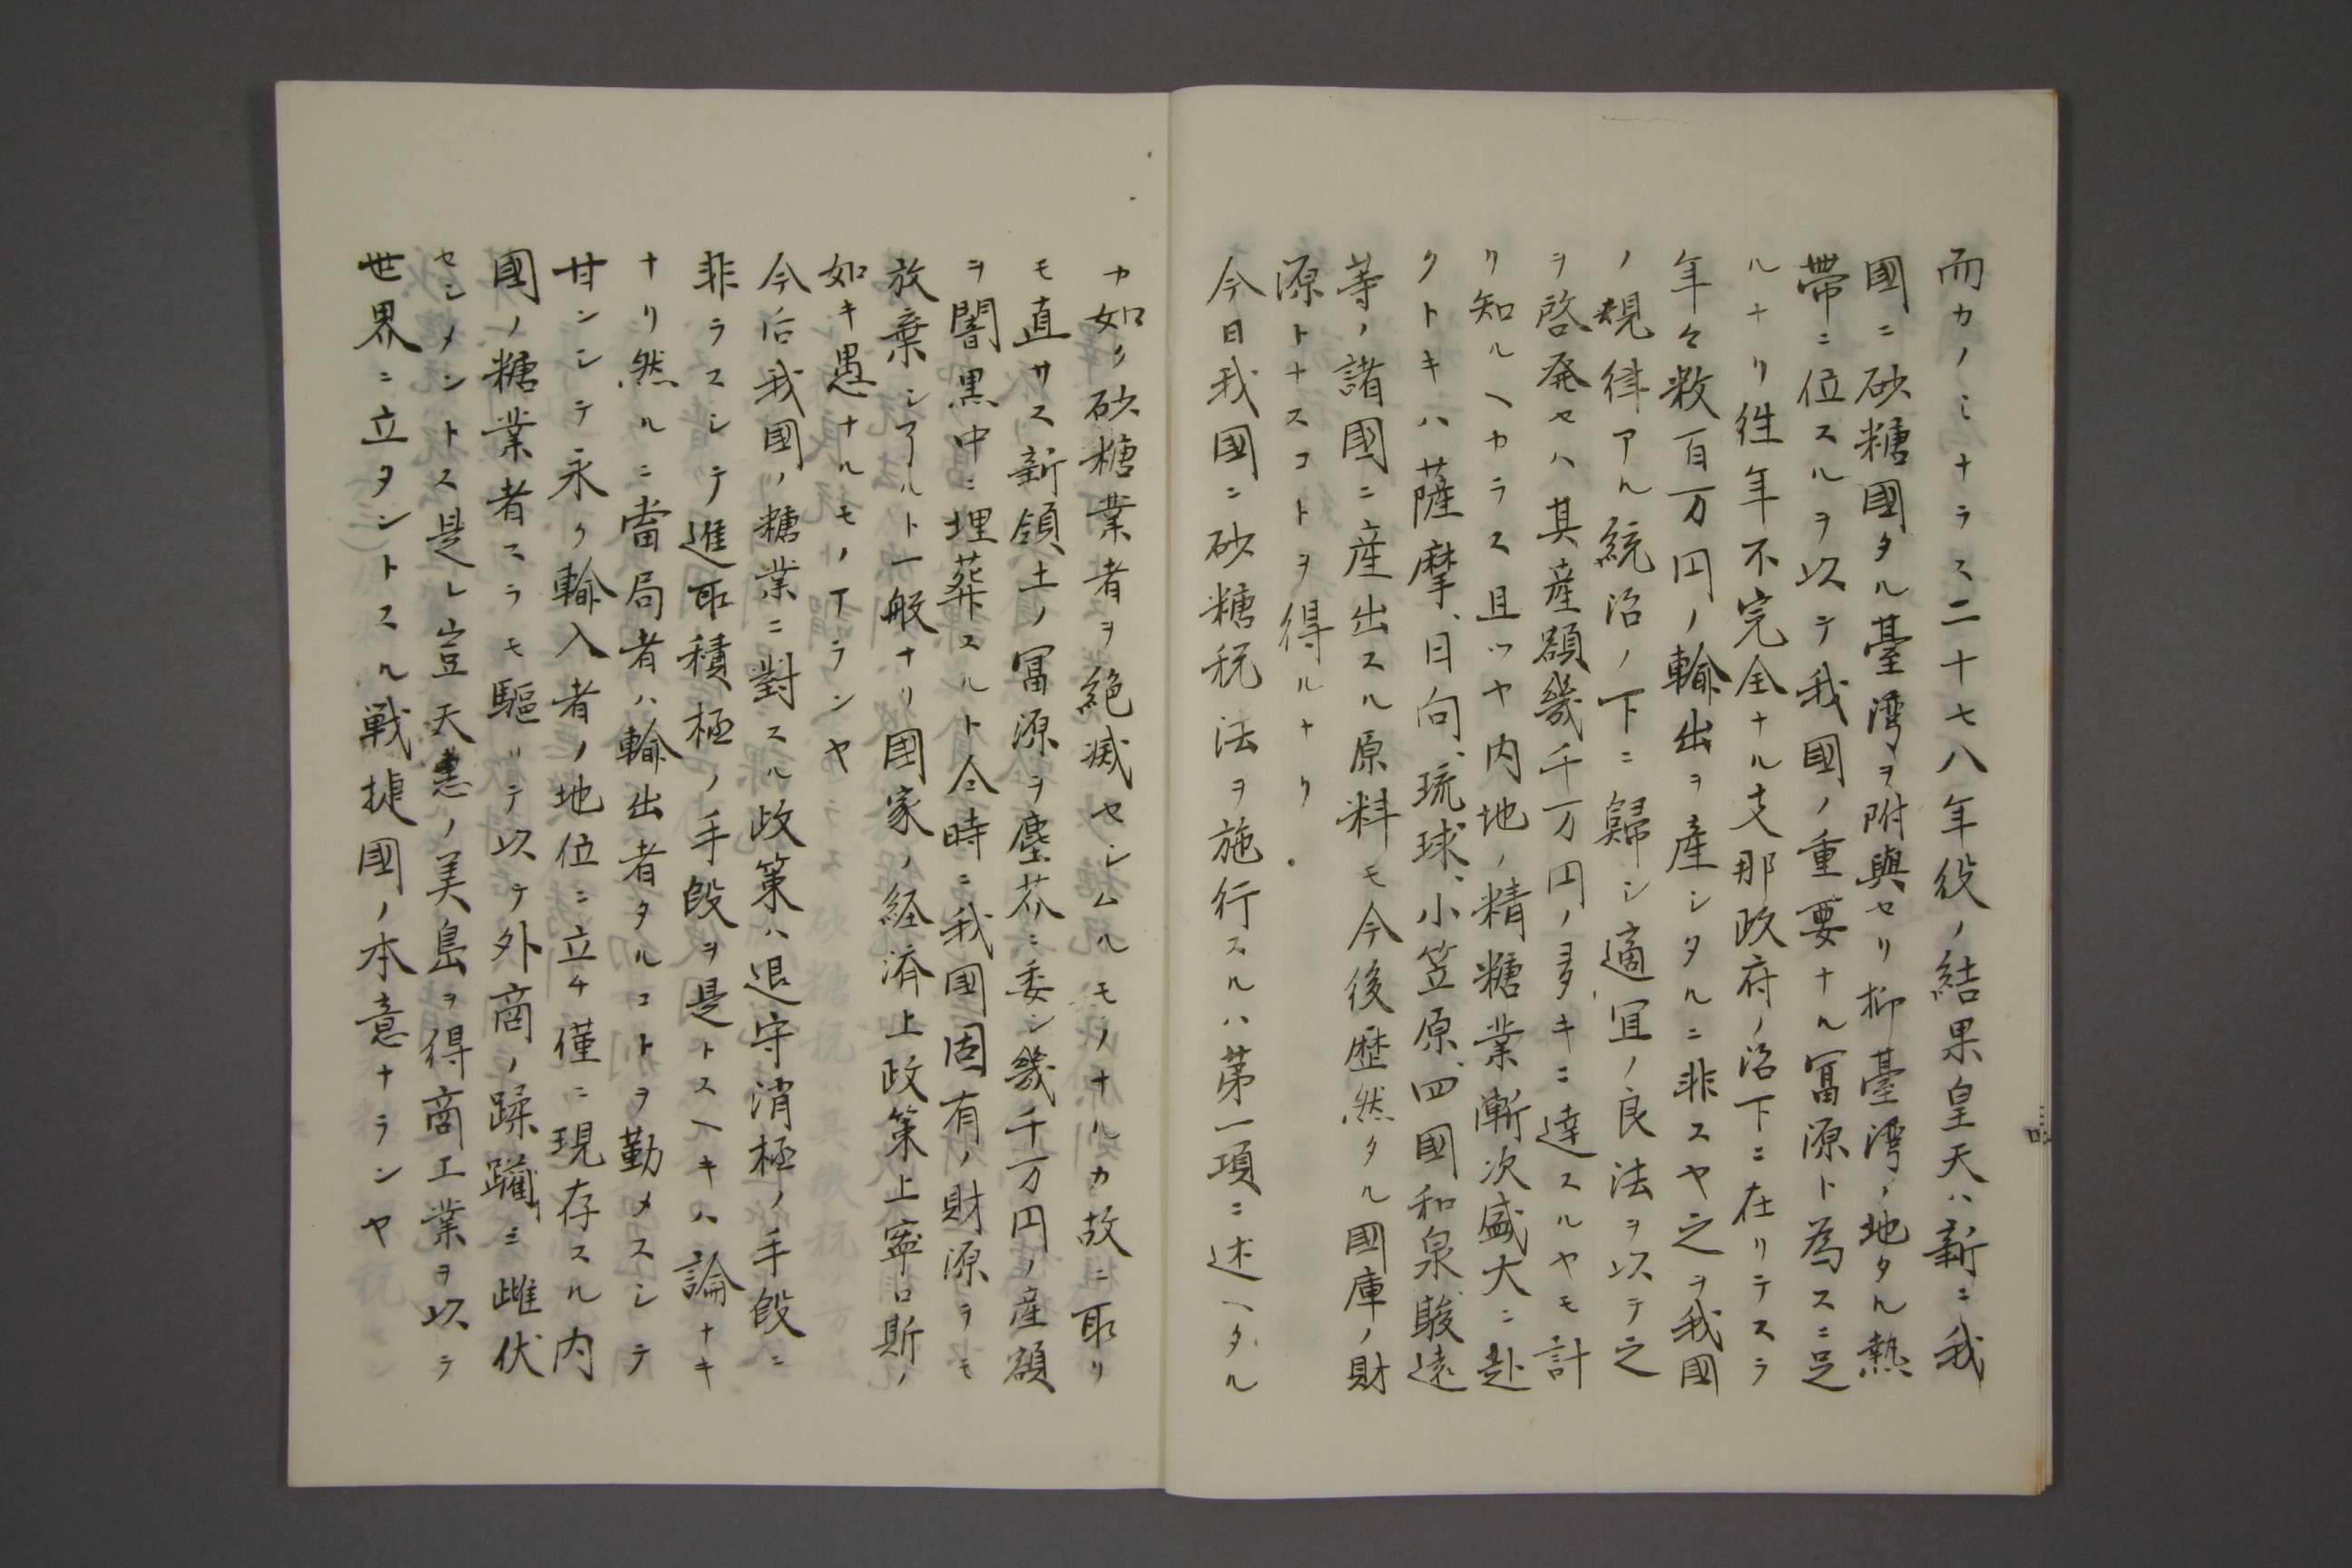 而カノミナラス二十七八年役ノ結果皇天ハ新ニ我
國ニ砂糖國タル臺湾ヲ附與セリ抑臺湾ノ地タル熱
帶ニ位スルヲ以テ我國ノ重要ナル冨源ト為スニ足
ルナリ徃年不完全ナル支那政府ノ治下ニ在リテスラ
年々数百万円ノ輸出ヲ産シタルニ非スヤ之ヲ我國
ノ規律アル統治ノ下ニ歸シ適宜ノ良法ヲ以テ之
ヲ啓発セハ其産額幾千万円ノ多キニ達スルヤモ計
リ知ルヘカラス且ツヤ内地ノ精糖業漸次盛大ニ赴
クトキハ薩摩、日向、琉球、小笠原、四國和泉駿遠
等ノ諸國ニ産出スル原料モ今後歴然タル國庫ノ財
源トナスコトヲ得ルナリ
今日我國ニ砂糖税法ヲ施行スルハ第一項ニ述ヘタル
カ如ク砂糖業者ヲ絶滅セシムルモノナルカ故ニ取リ
モ直サス新領土ノ冨源ヲ塵芥ニ委シ幾千万円ノ産額
ヲ闇黒中ニ埋葬スルト仝時ニ我國固有ノ財源ラモ
放棄シ了ルト一般ナリ国家ノ経済上政策上寧ロ斯ノ
如キ愚ナルモノアランヤ
今后我國ノ糖業ニ對スル政策ハ退守消極ノ手段ニ
非ラスシテ進取積極ノ手段ヲ是トスヘキハ論ナキ
ナリ然ルニ當局者ハ輸出者タルコトヲ勤メスシテ
甘ンシテ永ク輸入者ノ地位ニ立チ僅ニ現存スル内
國ノ糖業者スラモ驅リテ以テ外商ノ蹂躙ニ雌伏
セシメントス是レ豈天恵ノ美島ヲ得商工業ヲ以テ
世界ニ立タントスル戦捷國ノ本意ナランヤ